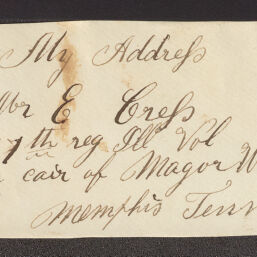 My Address
Mr E Cress
7th reg Ill Vol
cair of Magor W
Memphis Tenn